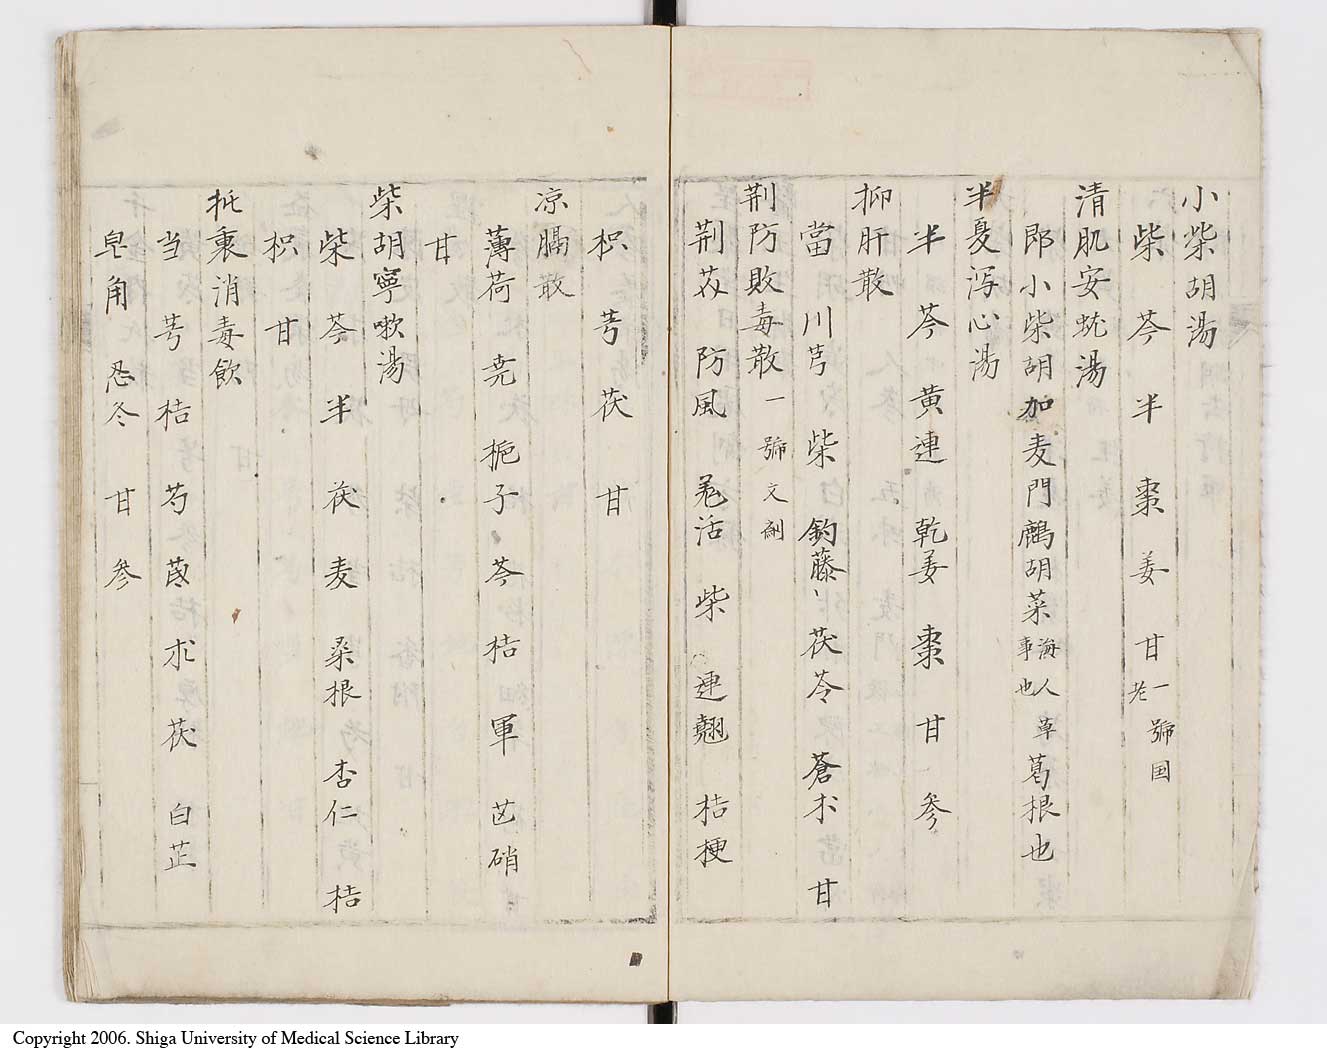 小柴胡湯
柴 芩 半 棗 姜 甘 一号国老
清肌安蚘湯
郎小柴胡加麦門鷓胡菜 海人草事也 葛根也
半夏泻心湯
半 芩 黄連 乾姜 棗 甘 参
抑肝散
當 川芎 柴 釣藤 茯苓 蒼朮 甘
荆防敗毒散 一號文劍
荆芥 防風 羗活 柴 連翹 桔梗
枳 芎 茯 甘
凉膈散
薄荷 尭 梔子 芩 桔 軍 芒硝
甘
柴胡寧嗽湯
柴 芩 半 茯 麦 桑根 杏仁 桔
枳 甘
托裏消毒飲
当 芎 桔 芍 茋 朮 茯 白芷
皂角 忍冬 甘 参
Copyright 2006. Shiga University of Medical Science Library